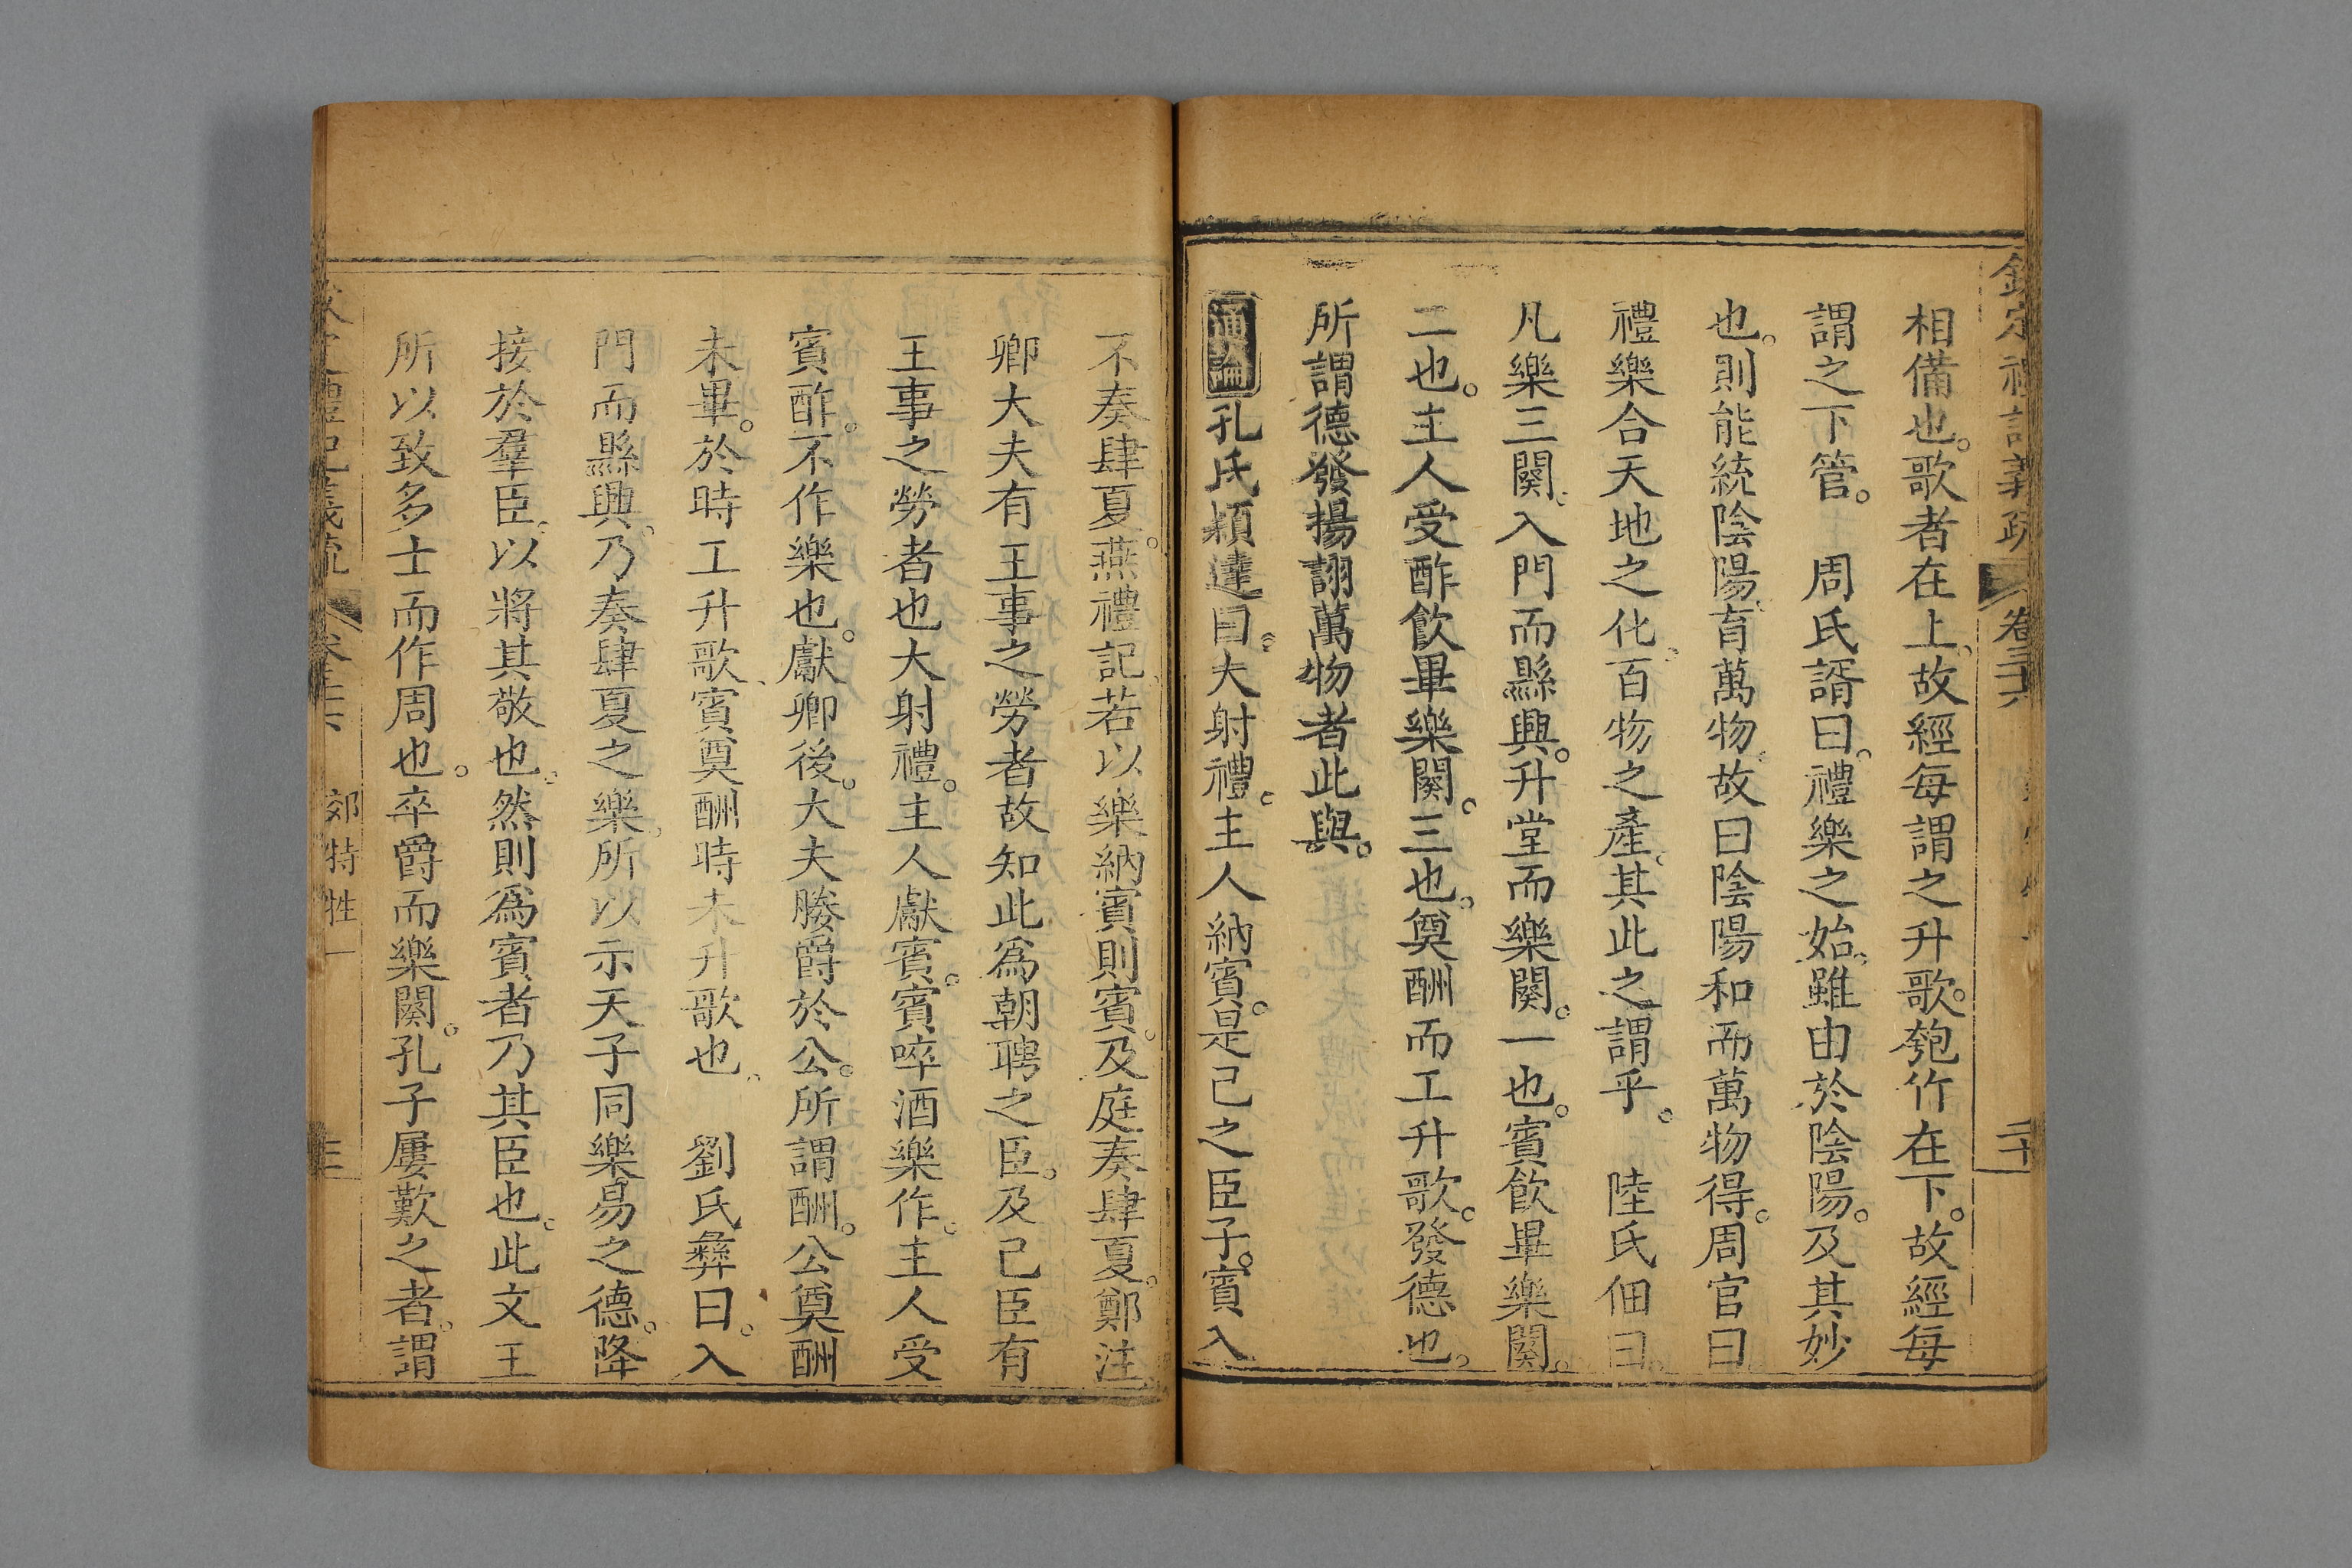 欽定禮記義疏 卷三十六 二十
相備也。歌者在上。故經每謂之升歌。匏竹在下。故經每
謂之下管。 周氏諝曰。禮樂之始。雖由於陰陽。及其妙
也。則能統陰陽。育萬物。故曰陰陽和而萬物得。周官曰
禮樂合天地之化。百物之產。其此之謂乎。 陸氏佃曰。
凡樂三闋。入門而縣興。升堂而樂闋。一也。賓飲畢樂闋。
二也。主人受酢飲畢樂闋。三也。奠酬而工升歌。發德也。
所謂德發揚詡萬物者此與。
通論孔氏穎達曰。夫射禮。主人納賓。是己之臣子。賓入
不奏肆夏。燕禮記。若以樂納賓則賓。及庭奏肆夏。鄭注。
卿大夫有王事之勞者故知此為朝聘之臣。及己臣有
王事之勞者也大射禮。主人獻賓。賓啐酒樂作。主人受
賓酢。不作樂也。獻卿後。大夫媵爵於公。所謂酬。公奠酬
未畢。於時工升歌、賓奠酬時未升歌也。 劉氏彝曰。入
門而縣興。乃奏肆夏之樂。所以示天子同樂易之德。降
接於羣臣。以將其敬也。然則為賓者乃其臣也。此文王
所以致多士而作周也。卒爵而樂闋。孔子屢歎之者。謂
禮記義疏 郊特牲一